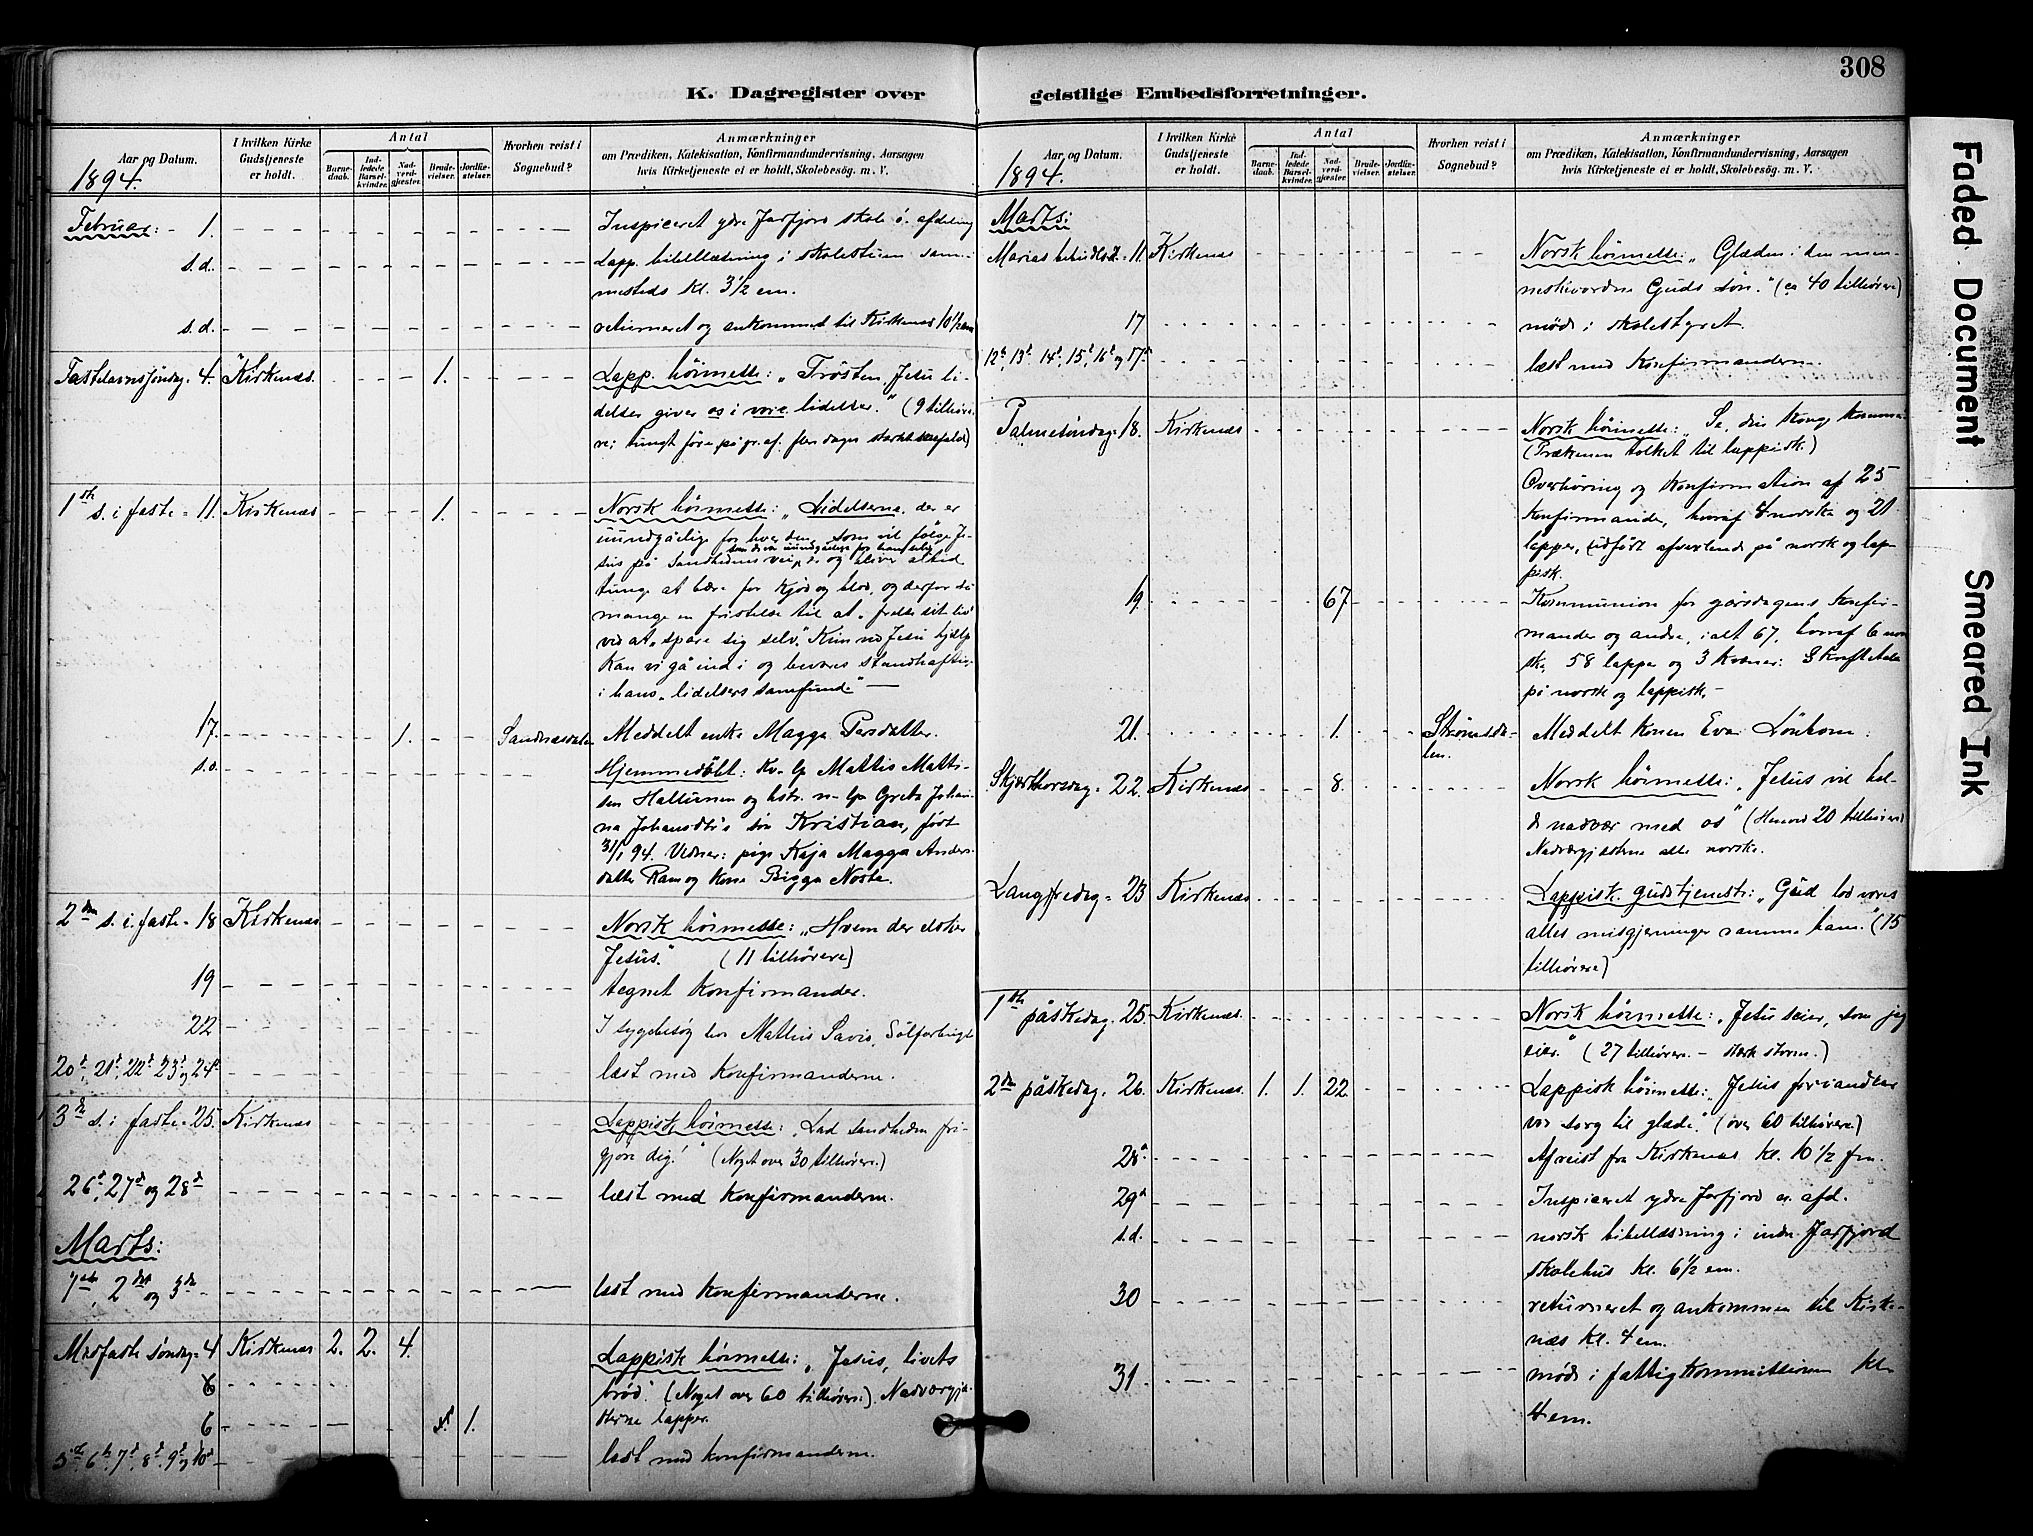 308
K. Dagregister over geistlige Embedsforretninger.
Aar og Datum.
1894.
I hvilken Kirke Gudstjeneste er holdt.
Antal
Barnedaab.
Indledede Barselkvinder.
Nadverdgjester.
Brudevielser.
Jordfæstelser.
Hvorhen reist i Sognebud?
Anmærkninger
om Prædiken, Katekisation, Konfirmandundervisning, Aarsagen
hvis Kirketjeneste ei er holdt, Skolebesøg. m. V.
Februar: 1. Inspiceret ydre Jarfjord skole ö. afdeling
s.d. Lapp. bibellæsning i skolestuen sam-
mesteds kl. 3 1/2 em.
s.d. returneret og ankommet til Kirkenæs 10 1/2 em
Fastelavnssöndag 4. Kirkenæs. 1. Lapp. höimesse: "Trösten Jesu li-
delser giver os i vore lidelser." (9 tilhöre-
re; tungt före på gr. af flere dages stærkt snefald)
1ste s. i faste 11. Kirkenæs 1. Norsk höimesse: "Lidelserne, der er
uundgåelige for hver den, som vil følge Je-
sus på Sandhedens vei, og bliver altid
tunge at bære for kjød og blod, og derfor så
mange en fristelse til at "frelse sit liv"
ved at "spare sig selv." Kun ved Jesu hjælp
kan vi gå ind i og bevares standhaftig
i hans "lidelsers samfund." —
17. 1. Sandnesdalen Meddelt enke Magga Persdatter.
s.d. Hjemmedöbt: Kv-lp Mattis Matti-
sen Hallunen og hstr. n-lp Greta Johan-
na Johansdtr's sön Kristian, født
31/1 94. Vidner: pige Kaja Magga Anders-
datter Ram og kone Bigga Noste.
2den s. i faste 18 Kirkenæs Norsk höimesse: "Hvem der elsker
Jesus." (11 tilhörere)
19 tegnet konfirmander.
22 I sygebesög hos Mathis Savio,
20de, 21de, 22de 23de og 24de læst med konfirmanderne.
3die s. i faste 25. Kirkenæs Lappisk höimesse: "Lad sandheden fri-
gjöre dig!" (Noget over 30 tilhörere.)
26de, 27de og 28de læst med konfirmanderne.
Marts:
1ste, 2den og 3die læst med konfirmanderne.
Midfaste söndag 4 Kirkenæs 2. 2. 4. Lappisk höimesse: "Jesus, livets
6 bröd." (Noget over 60 tilhörere). Nadvergjæ-
6 1. sterne lapper.
5te, 6te, 7de, 8de, 9de og 10de læst med konfirmanderne.
Aar og Datum.
1894.
I hvilken Kirke Gudstjeneste er holdt.
Antal
Barnedaab.
Indledede Barselkvinder.
Nadverdgjester.
Brudevielser.
Jordfæstelser.
Hvorhen reist i Sognebud?
Anmærkninger
om Prædiken, Katekisation, Konfirmandundervisning, Aarsagen
hvis Kirketjeneste ei er holdt, Skolebesøg. m. V.
Marts:
Marias bebudelsesd. 11. Kirkenæs Norsk höimesse: "Glæden i den men-
neskevordne Guds sön." (ca 40 tilhörere)
17 möde i skolestyret.
12te, 13de, 14de, 15de, 16de og 17de læst med konfirmanderne.
Palmesöndag 18. Kirkenæs Norsk höimesse: "Se, din konge kommer."
(Prækenen tolket til lappisk.)
Overhöring og konfirmation af 25
konfirmander, hvoraf 4 norske og 21
lapper, (udfört afvexlende på norsk og lap-
pisk.
19. 67 Kommunion for gårsdagens konfir-
mander og andre, ialt 67, hvoraf 6 nor-
ske, 58 lapper og 3 kvæner. Skriftetale
på norsk og lappisk. -
21. 1. Strömsda-
len. Meddelt konen Eva Lönholm.
Skjærthorsdag 22. Kirkenæs 8. Norsk höimesse: "Jesus vil hol-
de nadvær med os" (Henved 20 tilhörere)
Nadvergjæsterne alle norske.
Langfredag 23 Kirkenæs Lappisk gudstjeneste: "Gud lod vores
alles misgjerninger ramme ham." (15
tilhörere)
1ste påskedag 25. Kirkenæs. Norsk höimesse: "Jesu seier, som jeg
eier." (27 tilhörere. - stærk storm.)
2den påskedag 26. Kirkenæs. 1. 1. 22. Lappisk höimesse: "Jesus forvandler
vor sorg til glæde." (over 60 tilhörere)
28de Afreist fra Kirkenæs kl. 10 1/2 fm.
29de Inspiceret ydre Jarfjord ö. afd.
s.d. norsk bibellæsning i indre Jarfjord
skolehus kl. 6 1/2 em.
30 returneret og ankommen til Kirke-
næs kl. 4 em.
31 möde i fattigkommissionen kl.
4 em.
Faded Document
Smeared Ink